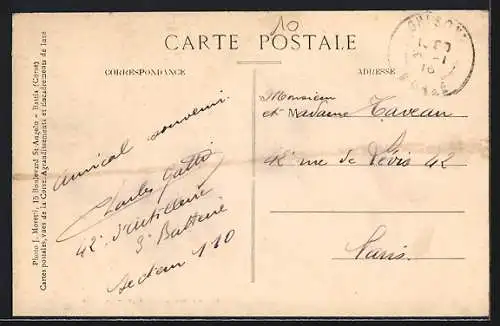 10
CARTE POSTALE
CORRESPONDANCE
ADRESSE
Amical souvenir.
Charles Gatti
42e d'artillerie
3e Batterie
Secteur 110
Monsieur
et Madame Taveau
42 rue de Lévis 42
Paris.
Photo J. Moretti, 15 Boulevard St Angelo - Bastia (Corse)
Cartes postales, vues de la Corse. Agrandissements et encadrements de luxe